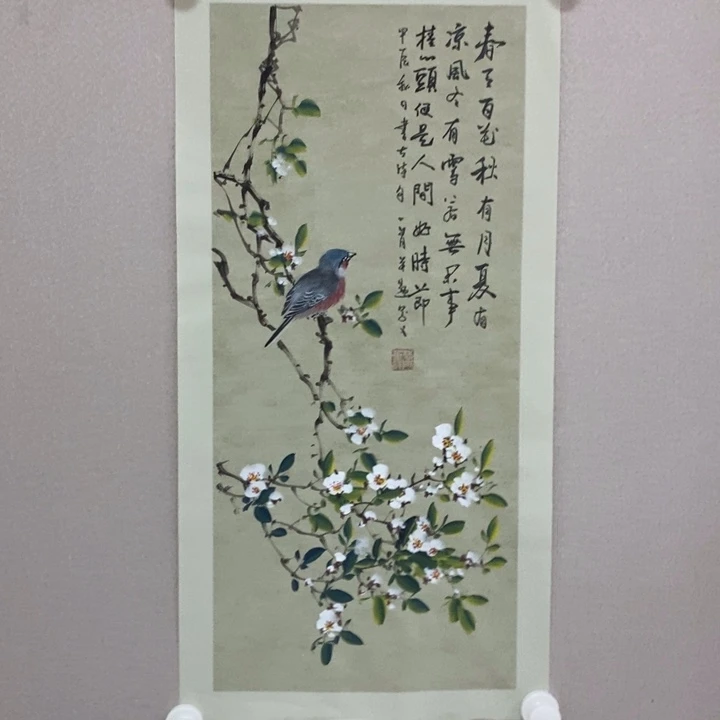 春有百花秋有月夏有
凉風冬有雪若無闲事
挂心頭便是人間好時節
甲辰秋月書古詩句